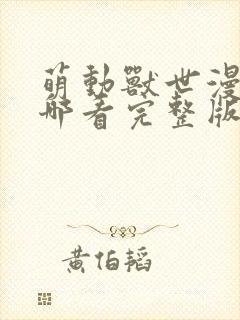 萌動獸世漫
哪看完整版
黃伯韬